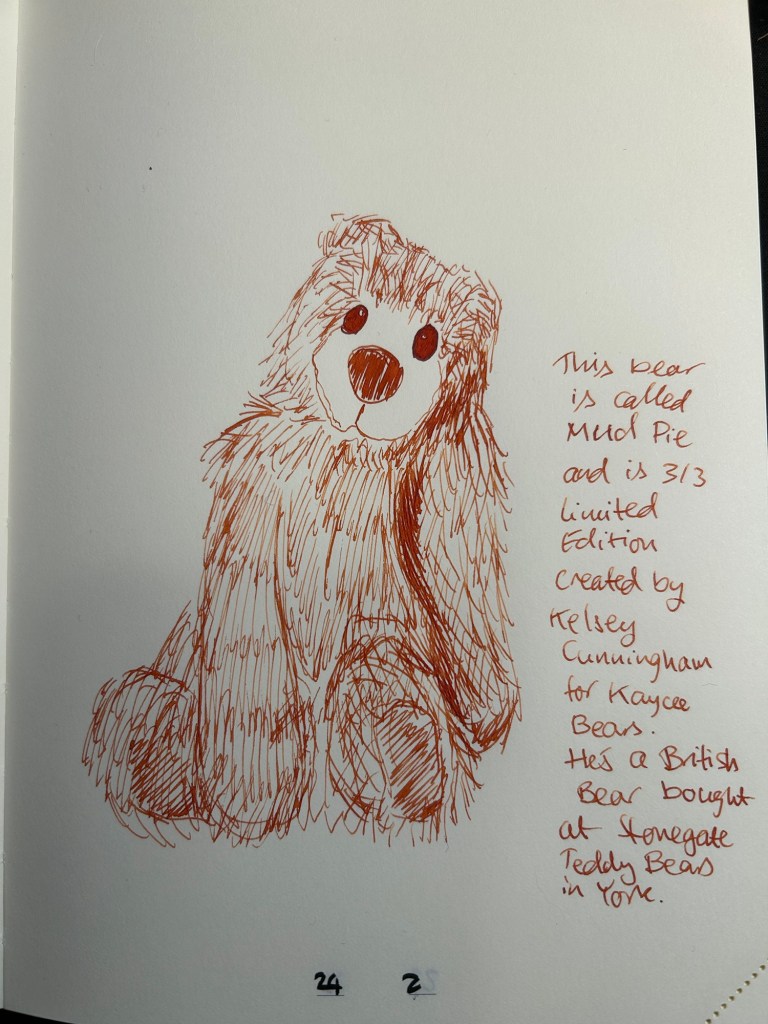 This bear
is called
Mud Pie
and is 3/3
limited
Edition
created by
Kelsey
Cunningham
for Kaycee
Bears.
He's a British
Bear bought
at Stonegate
Teddy Bears
in York.
24 2